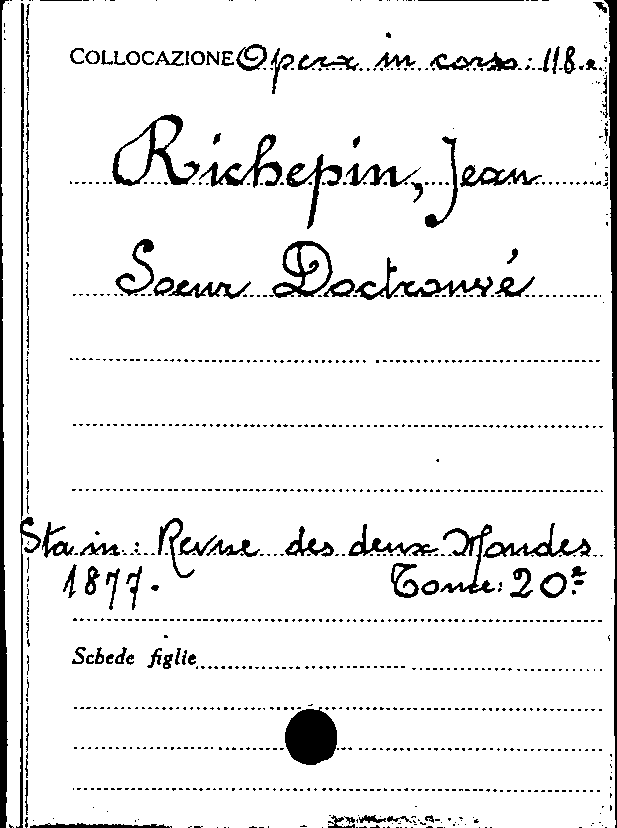 COLLOCAZIONE Opera in corso: 118.
Richepin, Jean
Soeur Doctrouvé
Sta in: Revue des deux Mondes
1877. Tome: 20º
Schede figlie